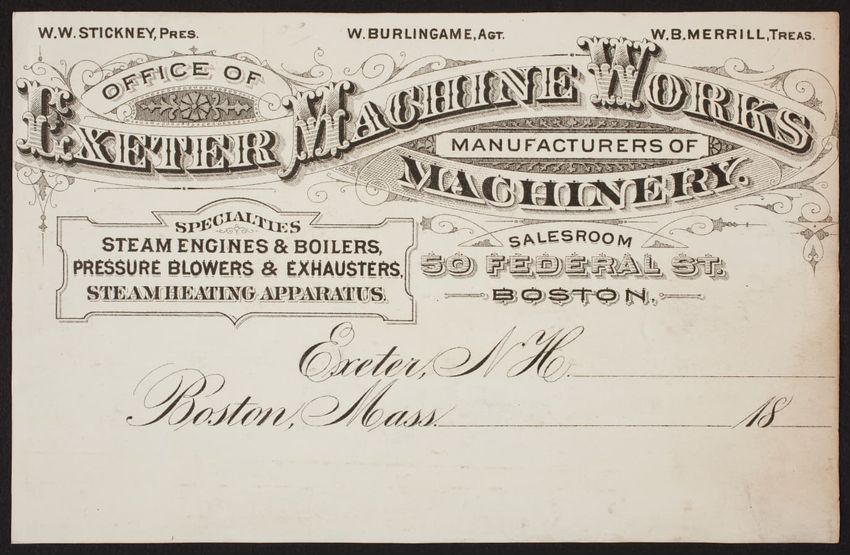 W.W. STICKNEY, PRES. W. BURLINGAME, AGT. W.B. MERRILL, TREAS.
OFFICE OF
EXETER MACHINE WORKS
MANUFACTURERS OF
MACHINERY.
SPECIALTIES
STEAM ENGINES & BOILERS,
PRESSURE BLOWERS & EXHAUSTERS,
STEAM HEATING APPARATUS.
SALESROOM
50 FEDERAL ST.
BOSTON.
Exeter, N.H.
Boston, Mass. 18